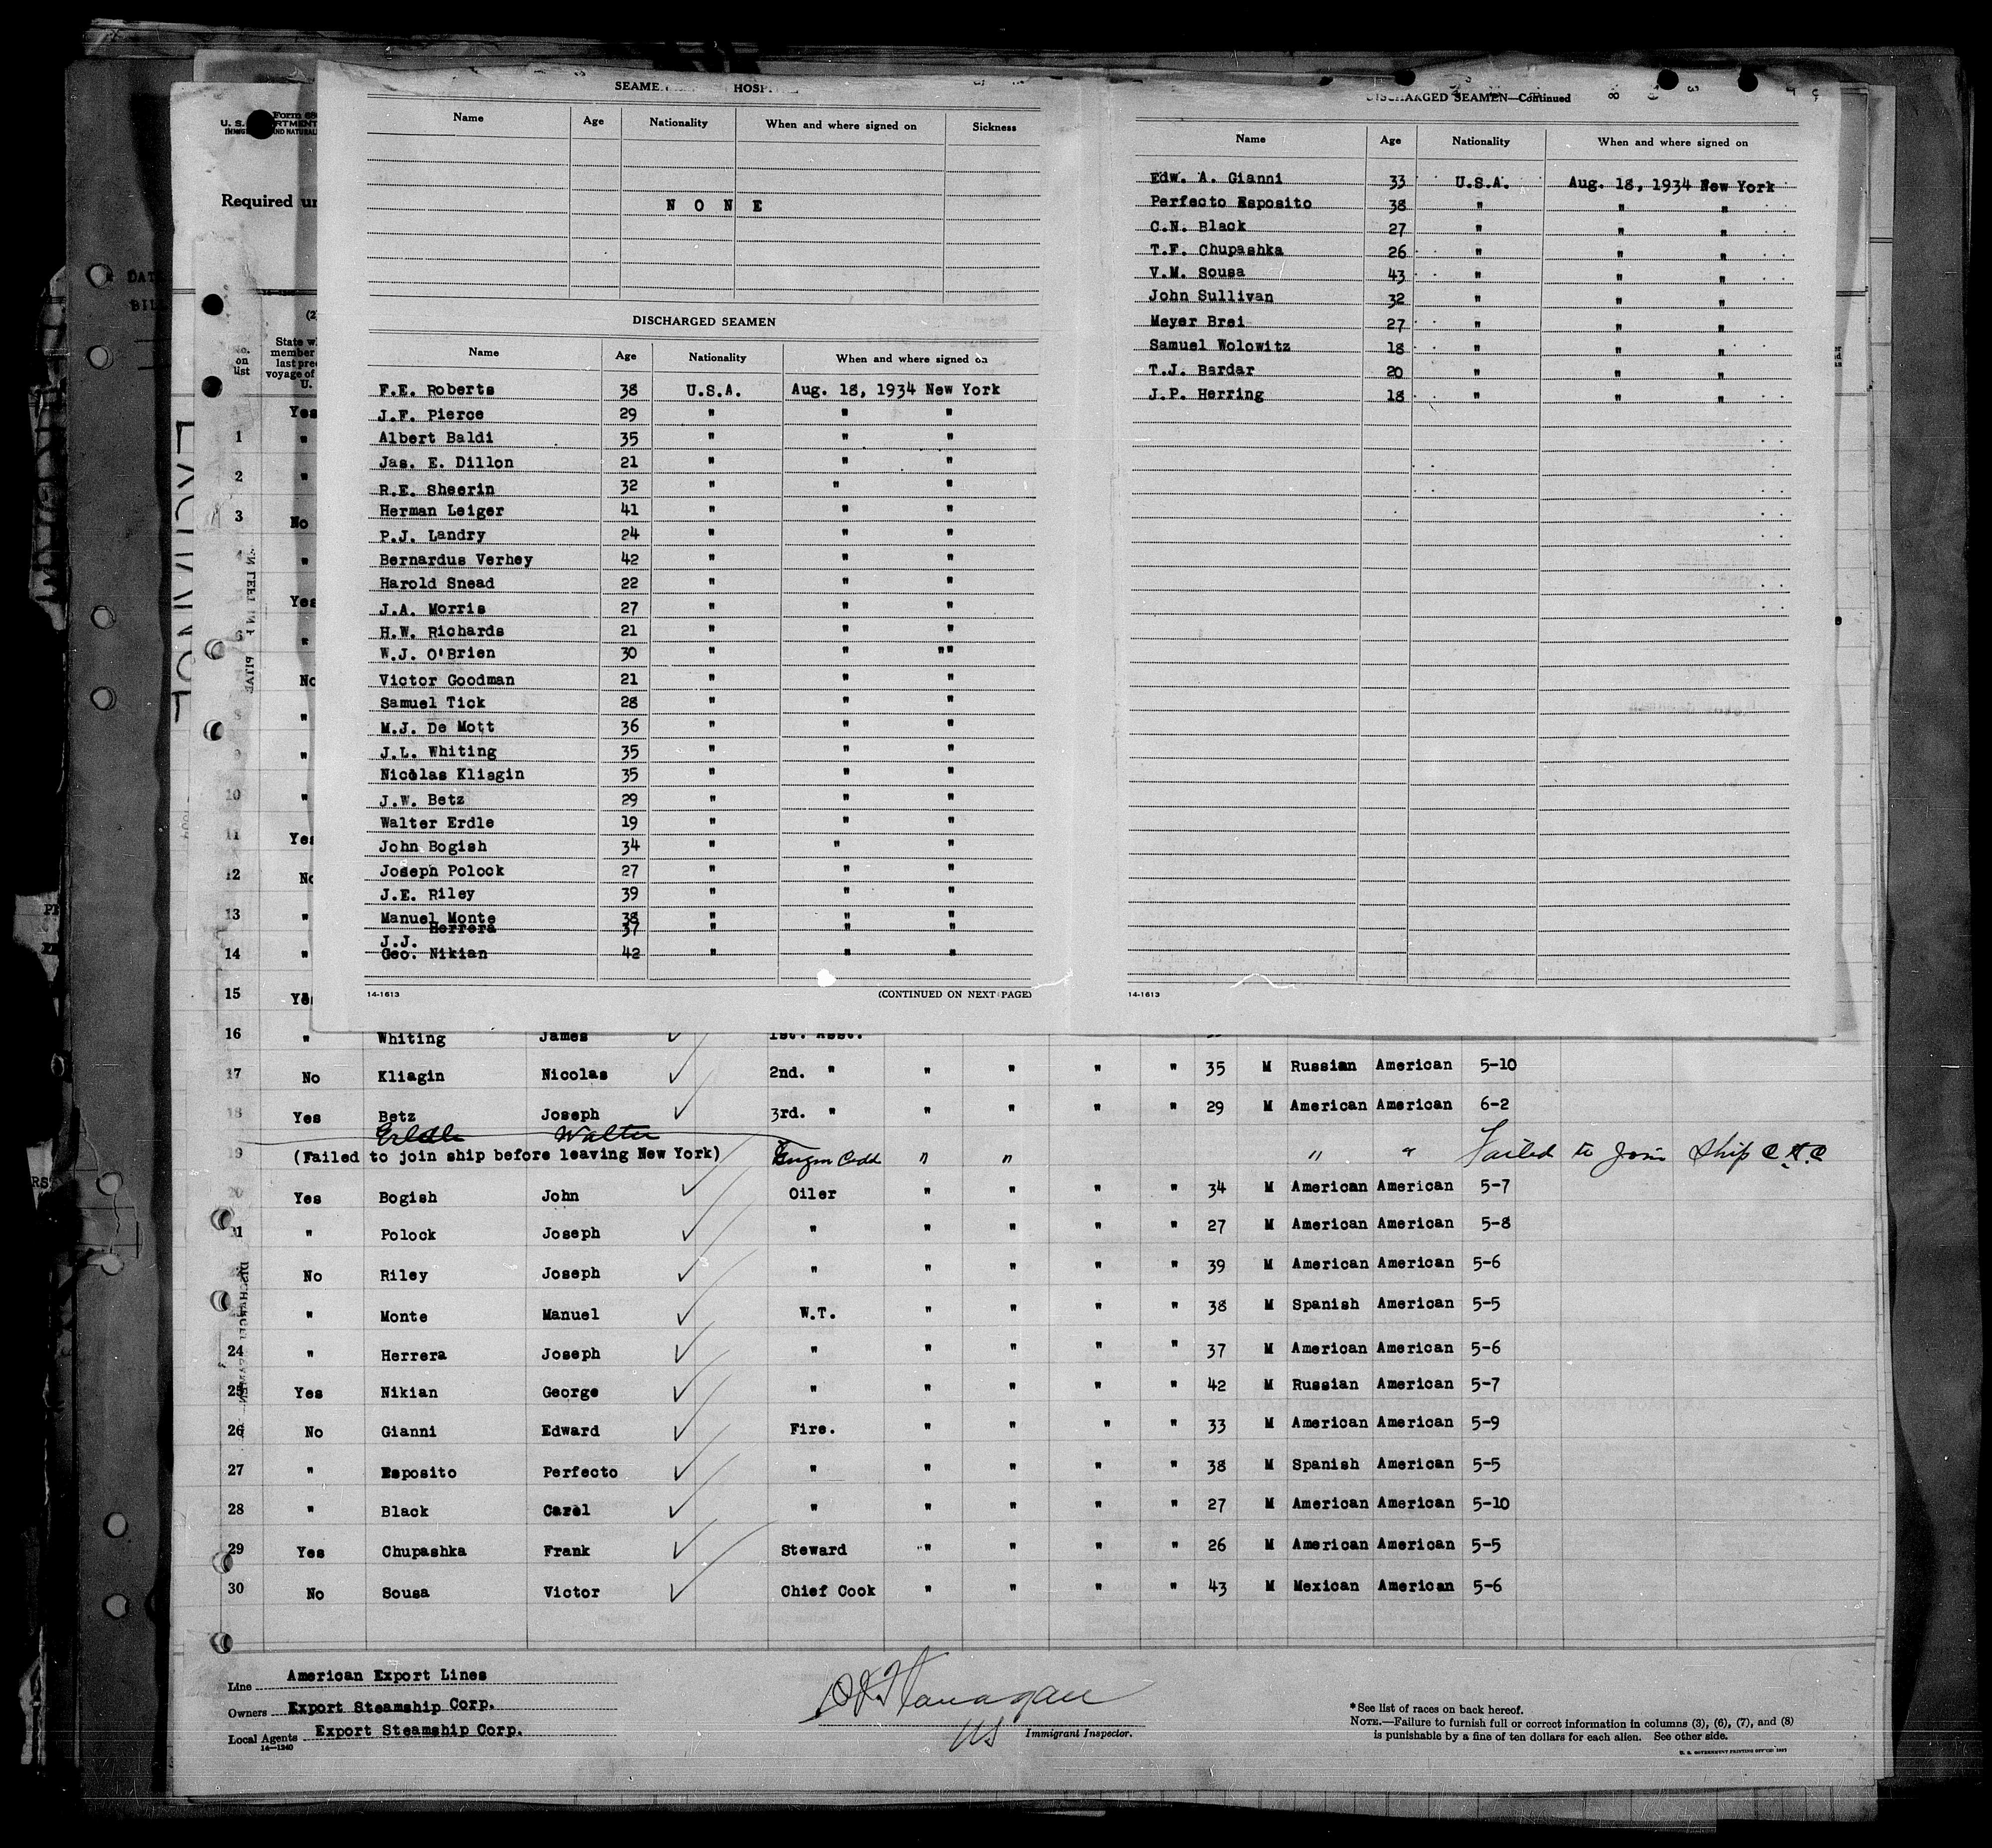 Form 68
U. S. RTMENT
IMMIG AND NATURAL
Required un
DATE
BILL
(2)
State w
member
last prec
voyage of
U.
No.
on
list
Yes
1 "
2 "
3 No
"
Yes
"
No
8 "
9 "
10 "
11 Yes
12 No
13 "
14 "
15 Yes
SEAME HOSP
Name Age Nationality When and where signed on Sickness
N O N E
DISCHARGED SEAMEN
Name Age Nationality When and where signed on
F.E. Roberts 38 U.S.A. Aug. 18, 1934 New York
J.F. Pierce 29 " " "
Albert Baldi 35 " " "
Jas. E. Dillon 21 " " "
R.E. Sheerin 32 " " "
Herman Leiger 41 " " "
P.J. Landry 24 " " "
Bernardus Verhey 42 " " "
Harold Snead 22 " " "
J.A. Morris 27 " " "
H.W. Richards 21 " " "
W.J. O'Brien 30 " " ""
Victor Goodman 21 " " "
Samuel Tick 28 " " "
M.J. De Mott 36 " " "
J.L. Whiting 35 " " "
Nicolas Kliagin 35 " " "
J.W. Betz 29 " " "
Walter Erdle 19 " " "
John Bogish 34 " " "
Joseph Polock 27 " " "
J.E. Riley 39 " " "
Manuel Monte 38 " " "
J.J. Herrera 37 " " "
Geo. Nikian 42 " " "
14-1613 (CONTINUED ON NEXT PAGE)
DISCHARGED SEAMEN—Continued
Name Age Nationality When and where signed on
Edw. A. Gianni 33 U.S.A. Aug. 18, 1934 New York
Perfecto Esposito 38 " " "
C.N. Black 27 " " "
T.F. Chupashka 26 " " "
V.M. Sousa 43 " " "
John Sullivan 32 " " "
Meyer Brei 27 " " "
Samuel Wolowitz 18 " " "
T.J. Bardar 20 " " "
J.P. Herring 18 " " "
14-1613
16 " Whiting James 1st. Asst.
17 No Kliagin Nicolas 2nd. " " " " " 35 M Russian American 5-10
18 Yes Betz Joseph 3rd. " " " " " 29 M American American 6-2
Erdle Walter
19 (Failed to join ship before leaving New York) Engin Cadd " " " " Failed to Join Ship
20 Yes Bogish John Oiler " " " " 34 M American American 5-7
21 " Polock Joseph " " " " " 27 M American American 5-8
No Riley Joseph " " " " " 39 M American American 5-6
" Monte Manuel W.T. " " " " 38 M Spanish American 5-5
24 " Herrera Joseph " " " " " 37 M American American 5-6
25 Yes Nikian George " " " " " 42 M Russian American 5-7
26 No Gianni Edward Fire. " " " " 33 M American American 5-9
27 " Esposito Perfecto " " " " " 38 M Spanish American 5-5
28 " Black Carel " " " " " 27 M American American 5-10
29 Yes Chupashka Frank Steward " " " " 26 M American American 5-5
30 No Sousa Victor Chief Cook " " " " 43 M Mexican American 5-6
Line American Export Lines
Owners Export Steamship Corp.
Local Agents Export Steamship Corp.
14—1240
Flanagan
US Immigrant Inspector.
*See list of races on back hereof.
NOTE.—Failure to furnish full or correct information in columns (3), (6), (7), and (8)
is punishable by a fine of ten dollars for each alien. See other side.